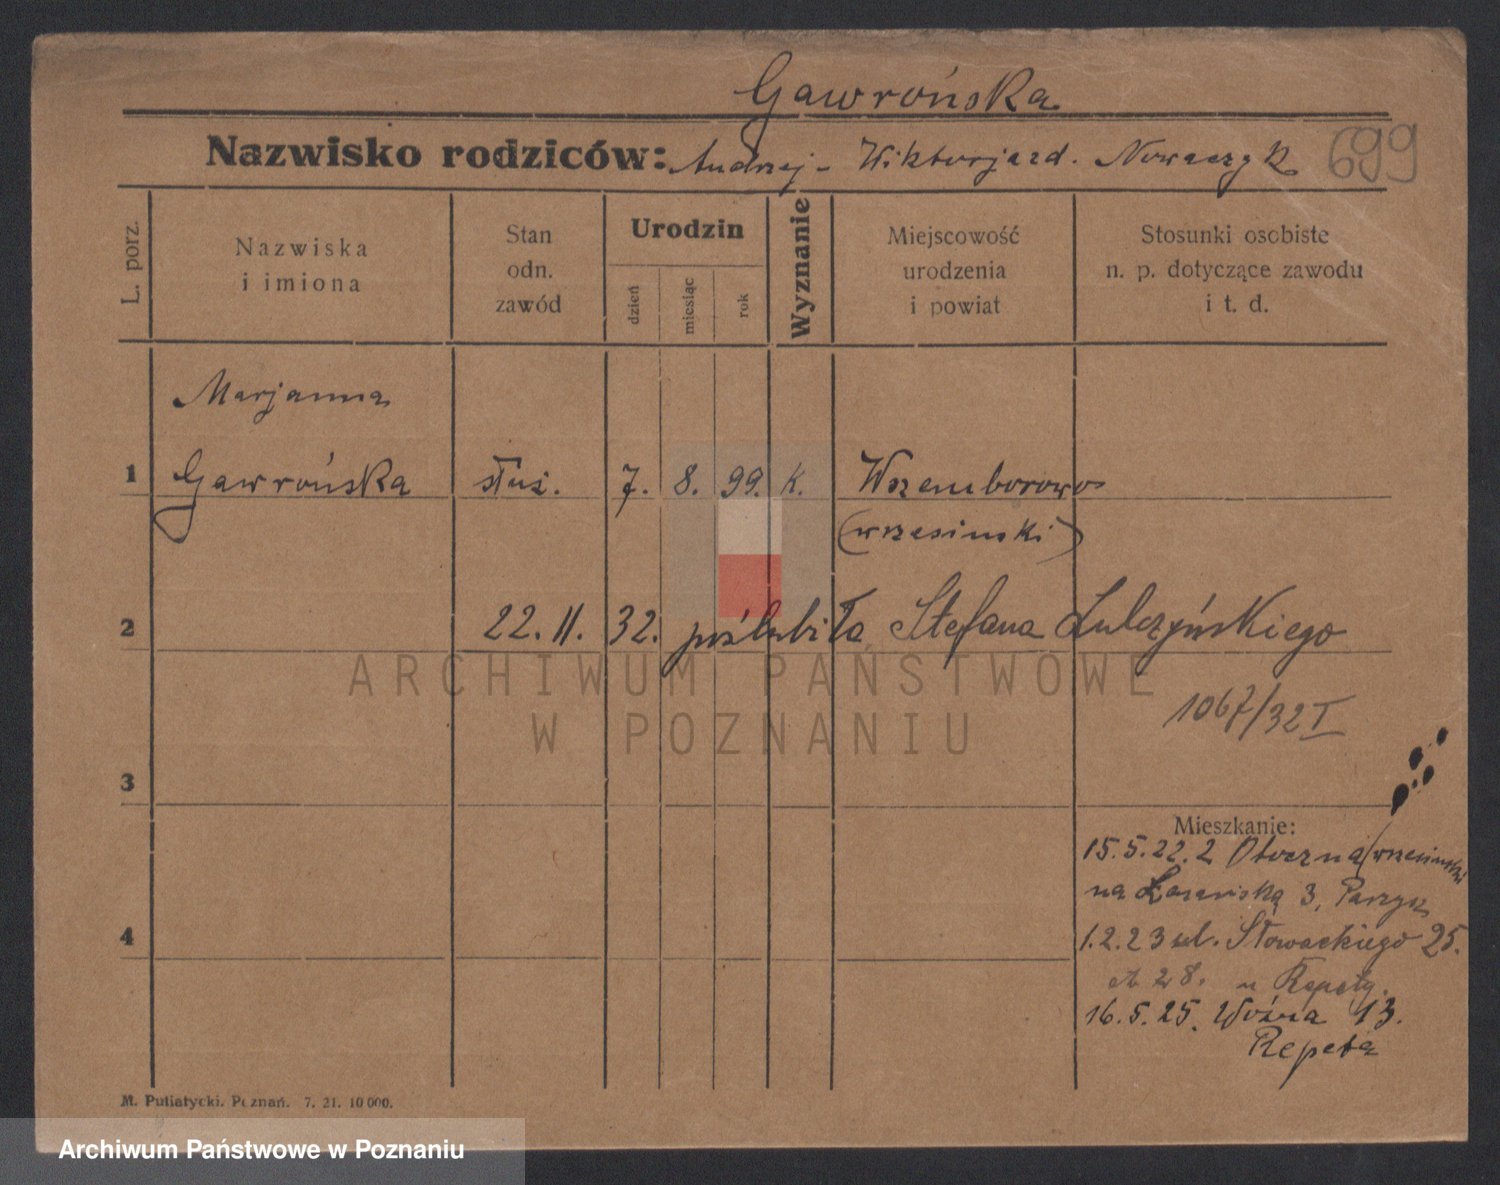 Gawrońska
Nazwisko rodziców: Andrzej - Wiktorja zd. Nowaczyk 699
L. porz.
Nazwiska
i imiona
Stan
odn.
zawód
Urodzin
dzień
miesiąc
rok
Wyznanie
Miejscowość
urodzenia
i powiat
Stosunki osobiste
n. p. dotyczące zawodu
i t. d.
Marjanna
1 Gawrońska służ. 7. 8. 99. k. Wszemborowo
(wrzesiński)
2 22. 11. 32. poślubiła Stefana Lulczyńskiego
ARCHIWUM PAŃSTWOWE
W POZNANIU
1067/32 I
3
Mieszkanie:
15.5.22. z Otoczna (wrzesiński
na 3,
4 1.2.23 ul. Słowackiego 25.
28. u Repety.
16.5.25. Woźna 13.
Repeta
M. Putiatycki. Poznań. 7. 21. 10 000.
Archiwum Państwowe w Poznaniu